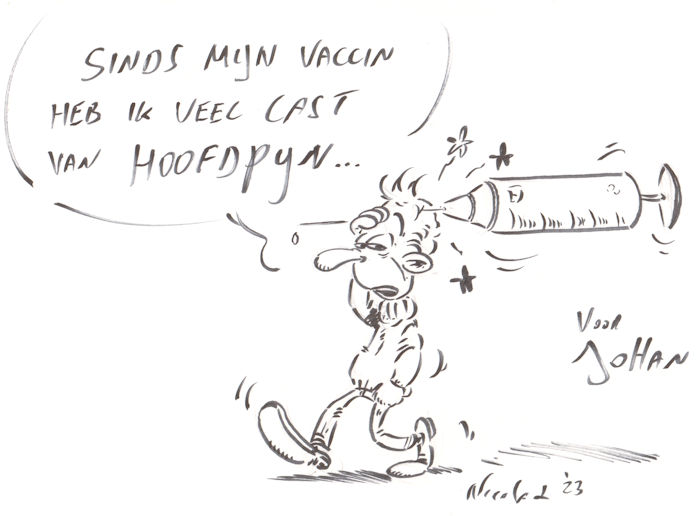 SINDS MIJN VACCIN
HEB IK VEEL LAST
VAN HOOFDPIJN...
VOOR
JOHAN
'23